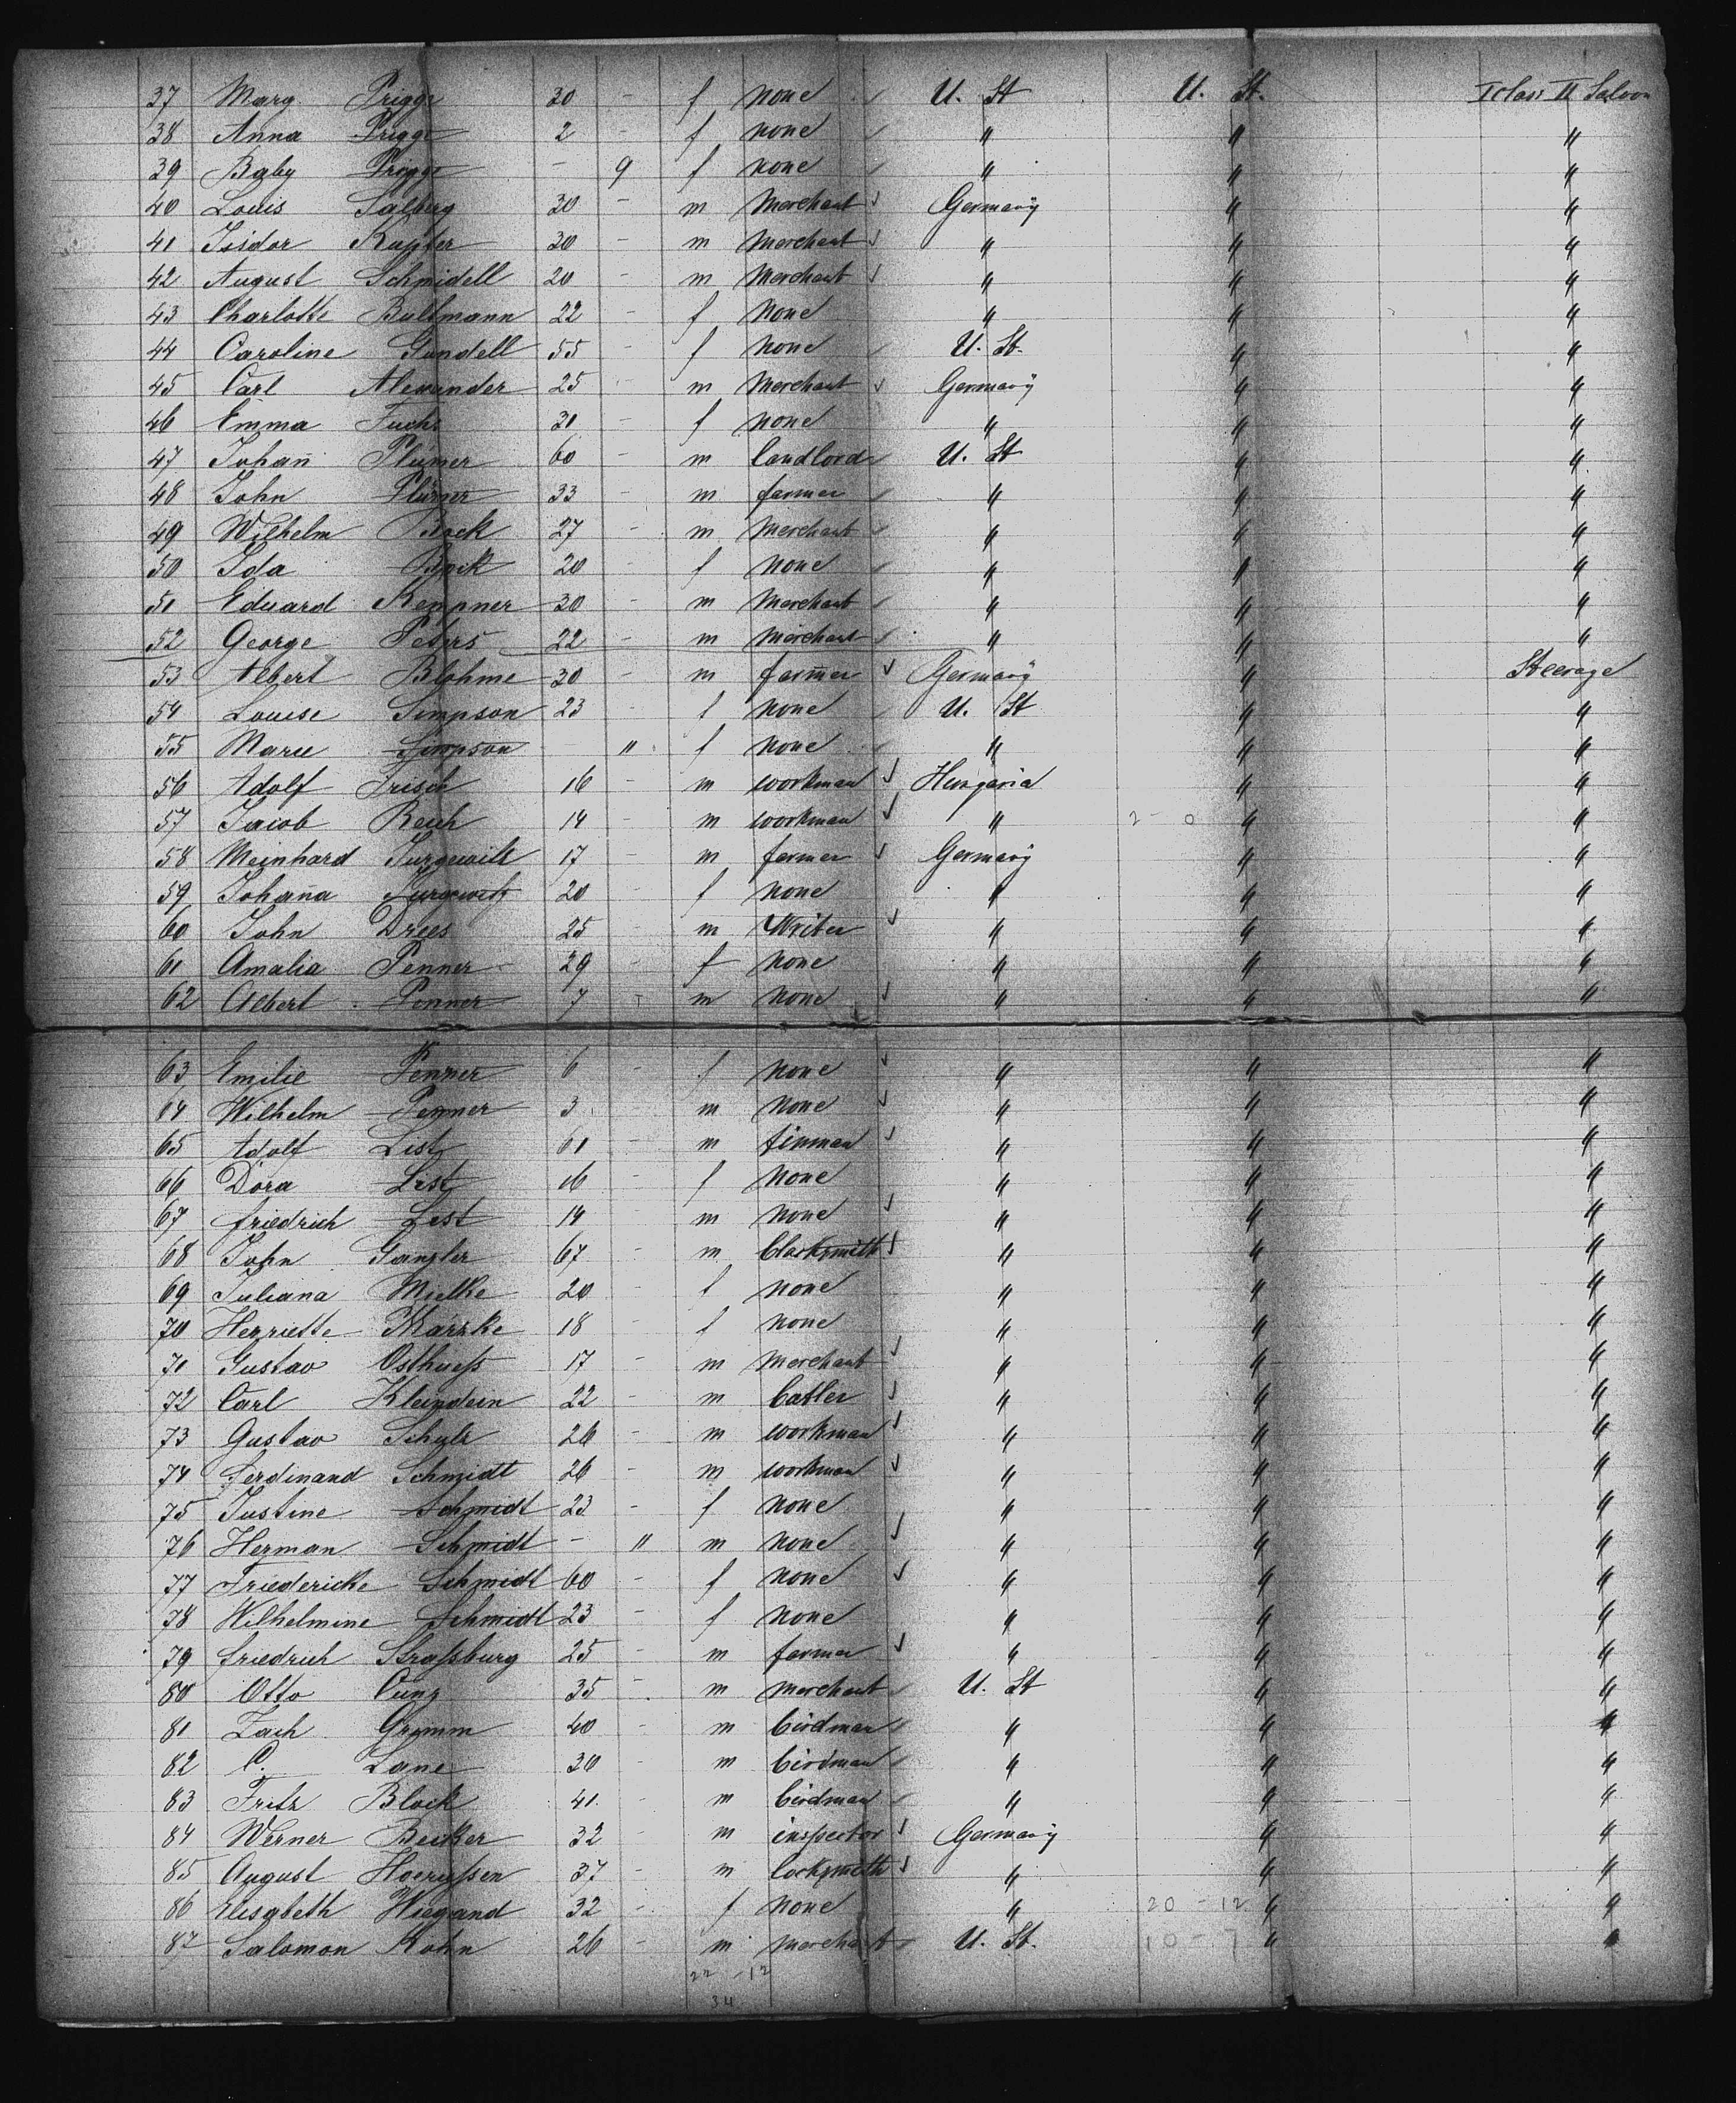 37 Marg. Prigge 30 - f none U. St U. St. I class II Saloon
38 Anna Prigge 2 - f none " " "
39 Baby Prigge - 9 f none " " "
40 Louis Salberg 30 - m Merchant Germany " "
41 Isidor Kupfer 30 - m Merchant " " "
42 August Schmidell 20 - m Merchant " " "
43 Charlotte Bultmann 22 - f None " " "
44 Caroline Gundell 55 - f None U. St. " "
45 Carl Alexander 25 - m Merchant Germany " "
46 Emma Fuchs 31 - f none " " "
47 Johan̄ Plumer 60 - m landlord U. St " "
48 John Plümer 33 - m farmer " " "
49 Wilhelm Bock 27 - m Merchant " " "
50 Ida Bock 20 - f None " " "
51 Eduard Keppner 30 - m Merchant " " "
52 George Peters 22 - m merchant " " "
53 Albert Blohme 30 - m farm̄er Germany " Steerage
54 Louise Simpson 23 - f None U. St " "
55 Marie Simpson - 11 f none " " "
56 Adolf Frisch 16 - m workman Hungaria " "
57 Jacob Reich 14 - m workman " 2 - 0 " "
58 Meinhard 17 - m farmer Germany " "
59 Johan̄a 20 - f none " " "
60 John Drees 25 - m Writer " " "
61 Amalia Penner 29 - f none " " "
62 Albert Penner 7 - m none " " "
63 Emilie Penner 6 - f none " " "
64 Wilhelm Penner 3 m none " " "
65 Adolf List 61 - m tinman " " "
66 Dora List 16 - f none " " "
67 friedrich List 14 - m none " " "
68 John Gangler 67 - m blacksmith " " "
69 Juliana Mielke 20 - f none " " "
70 Henriette Märzke 18 - f none " " "
71 Gustav Osthueß 17 - m merchant " " "
72 Carl Kleindein 22 - m " " "
73 Gustav Schulz 26 - m workman " " "
74 Ferdinand Schmidt 26 - m workman " " "
75 Justine Schmidt 23 - f none " " "
76 Herman Schmidt - 11 m none " " "
77 Friedericke Schmidt 60 - f none " " "
78 Wilhelmine Schmidt 23 - f none " " "
79 friedrich Straßburg 25 - m farmer " " "
80 Otto Cunz 35 - m merchant U. St " "
81 Zach Grimm 40 - m birdman " " "
82 C. Lane 30 - m birdman " " "
83 Fritz Block 41 - m birdman " " "
84 Werner Becker 32 - m inspector Germany " "
85 August 37 - m locksmith " " "
86 Elisabeth Wiegand 32 - f none " 20 - 12 " "
87 Salomon Kohn 26 - m merchant U. St. 10 - 1 " "
22 - 12
34